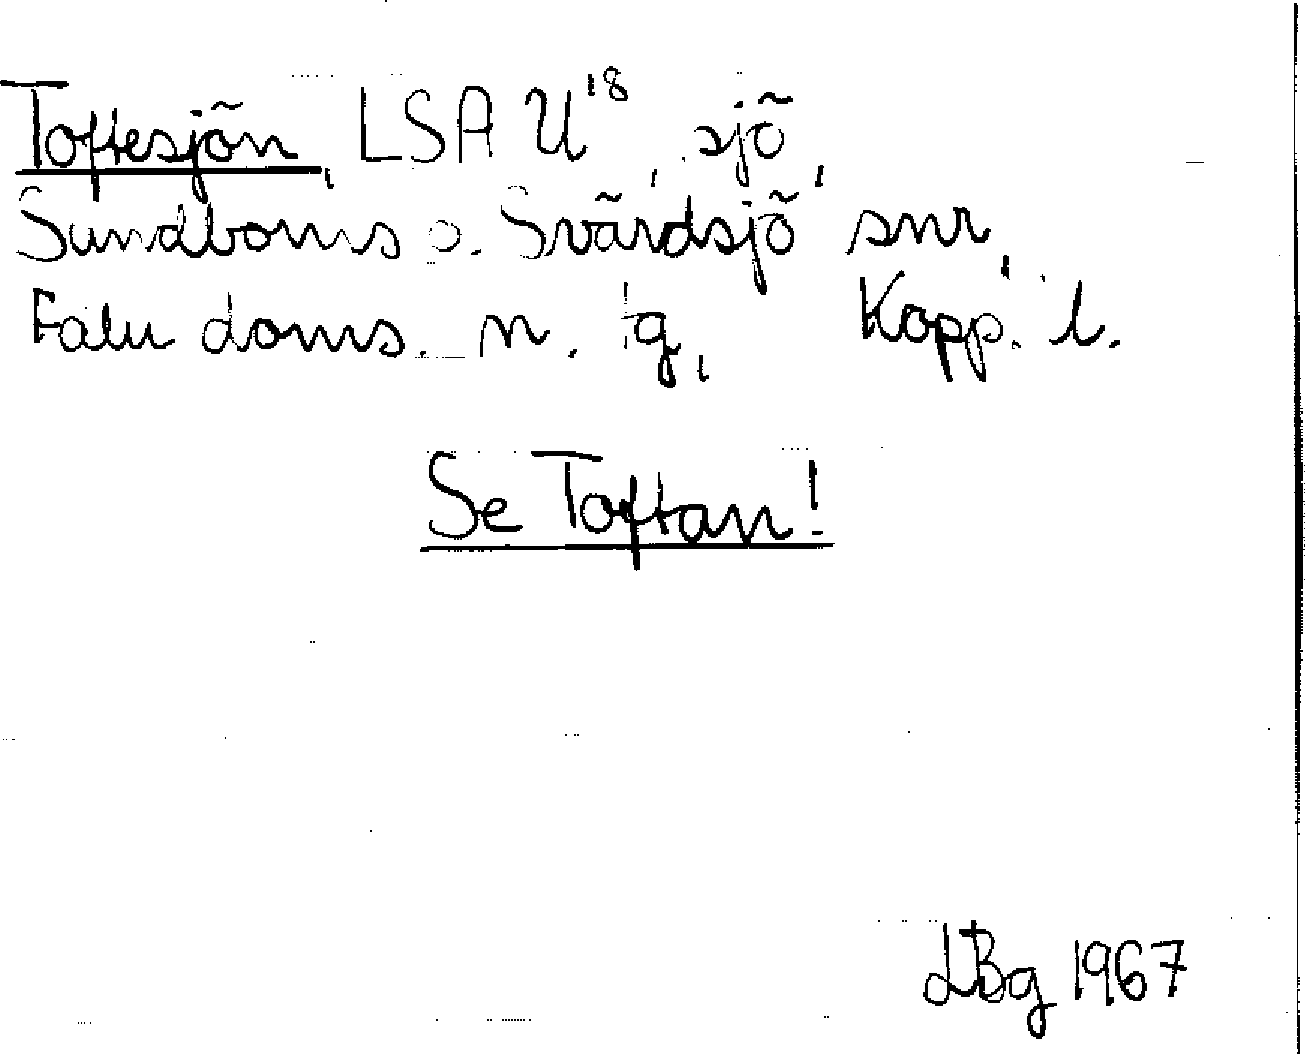 Toftesjön, LSA U¹⁸, sjö,
Sundborns o. Svärdsjö snr,
Falu doms. n. tg, Kopp. l.
Se Toftan!
LBg 1967